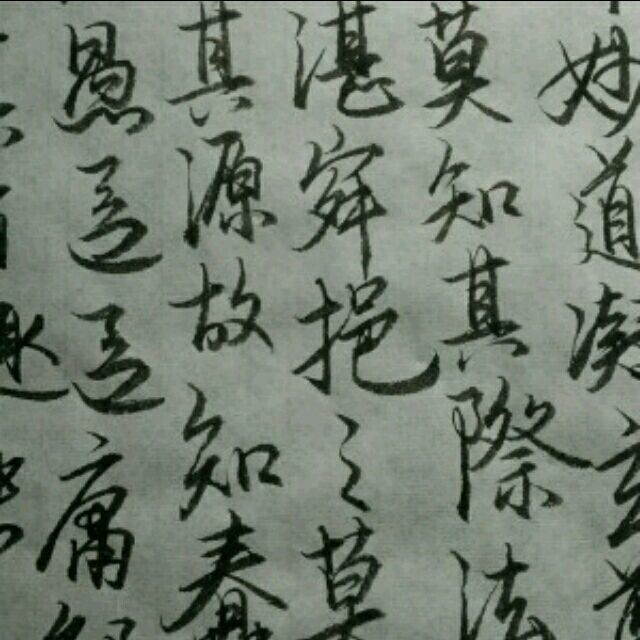 妙道凝玄
莫知其際法
湛寂挹之莫
其源故知蠢
愚區區庸
旨趣